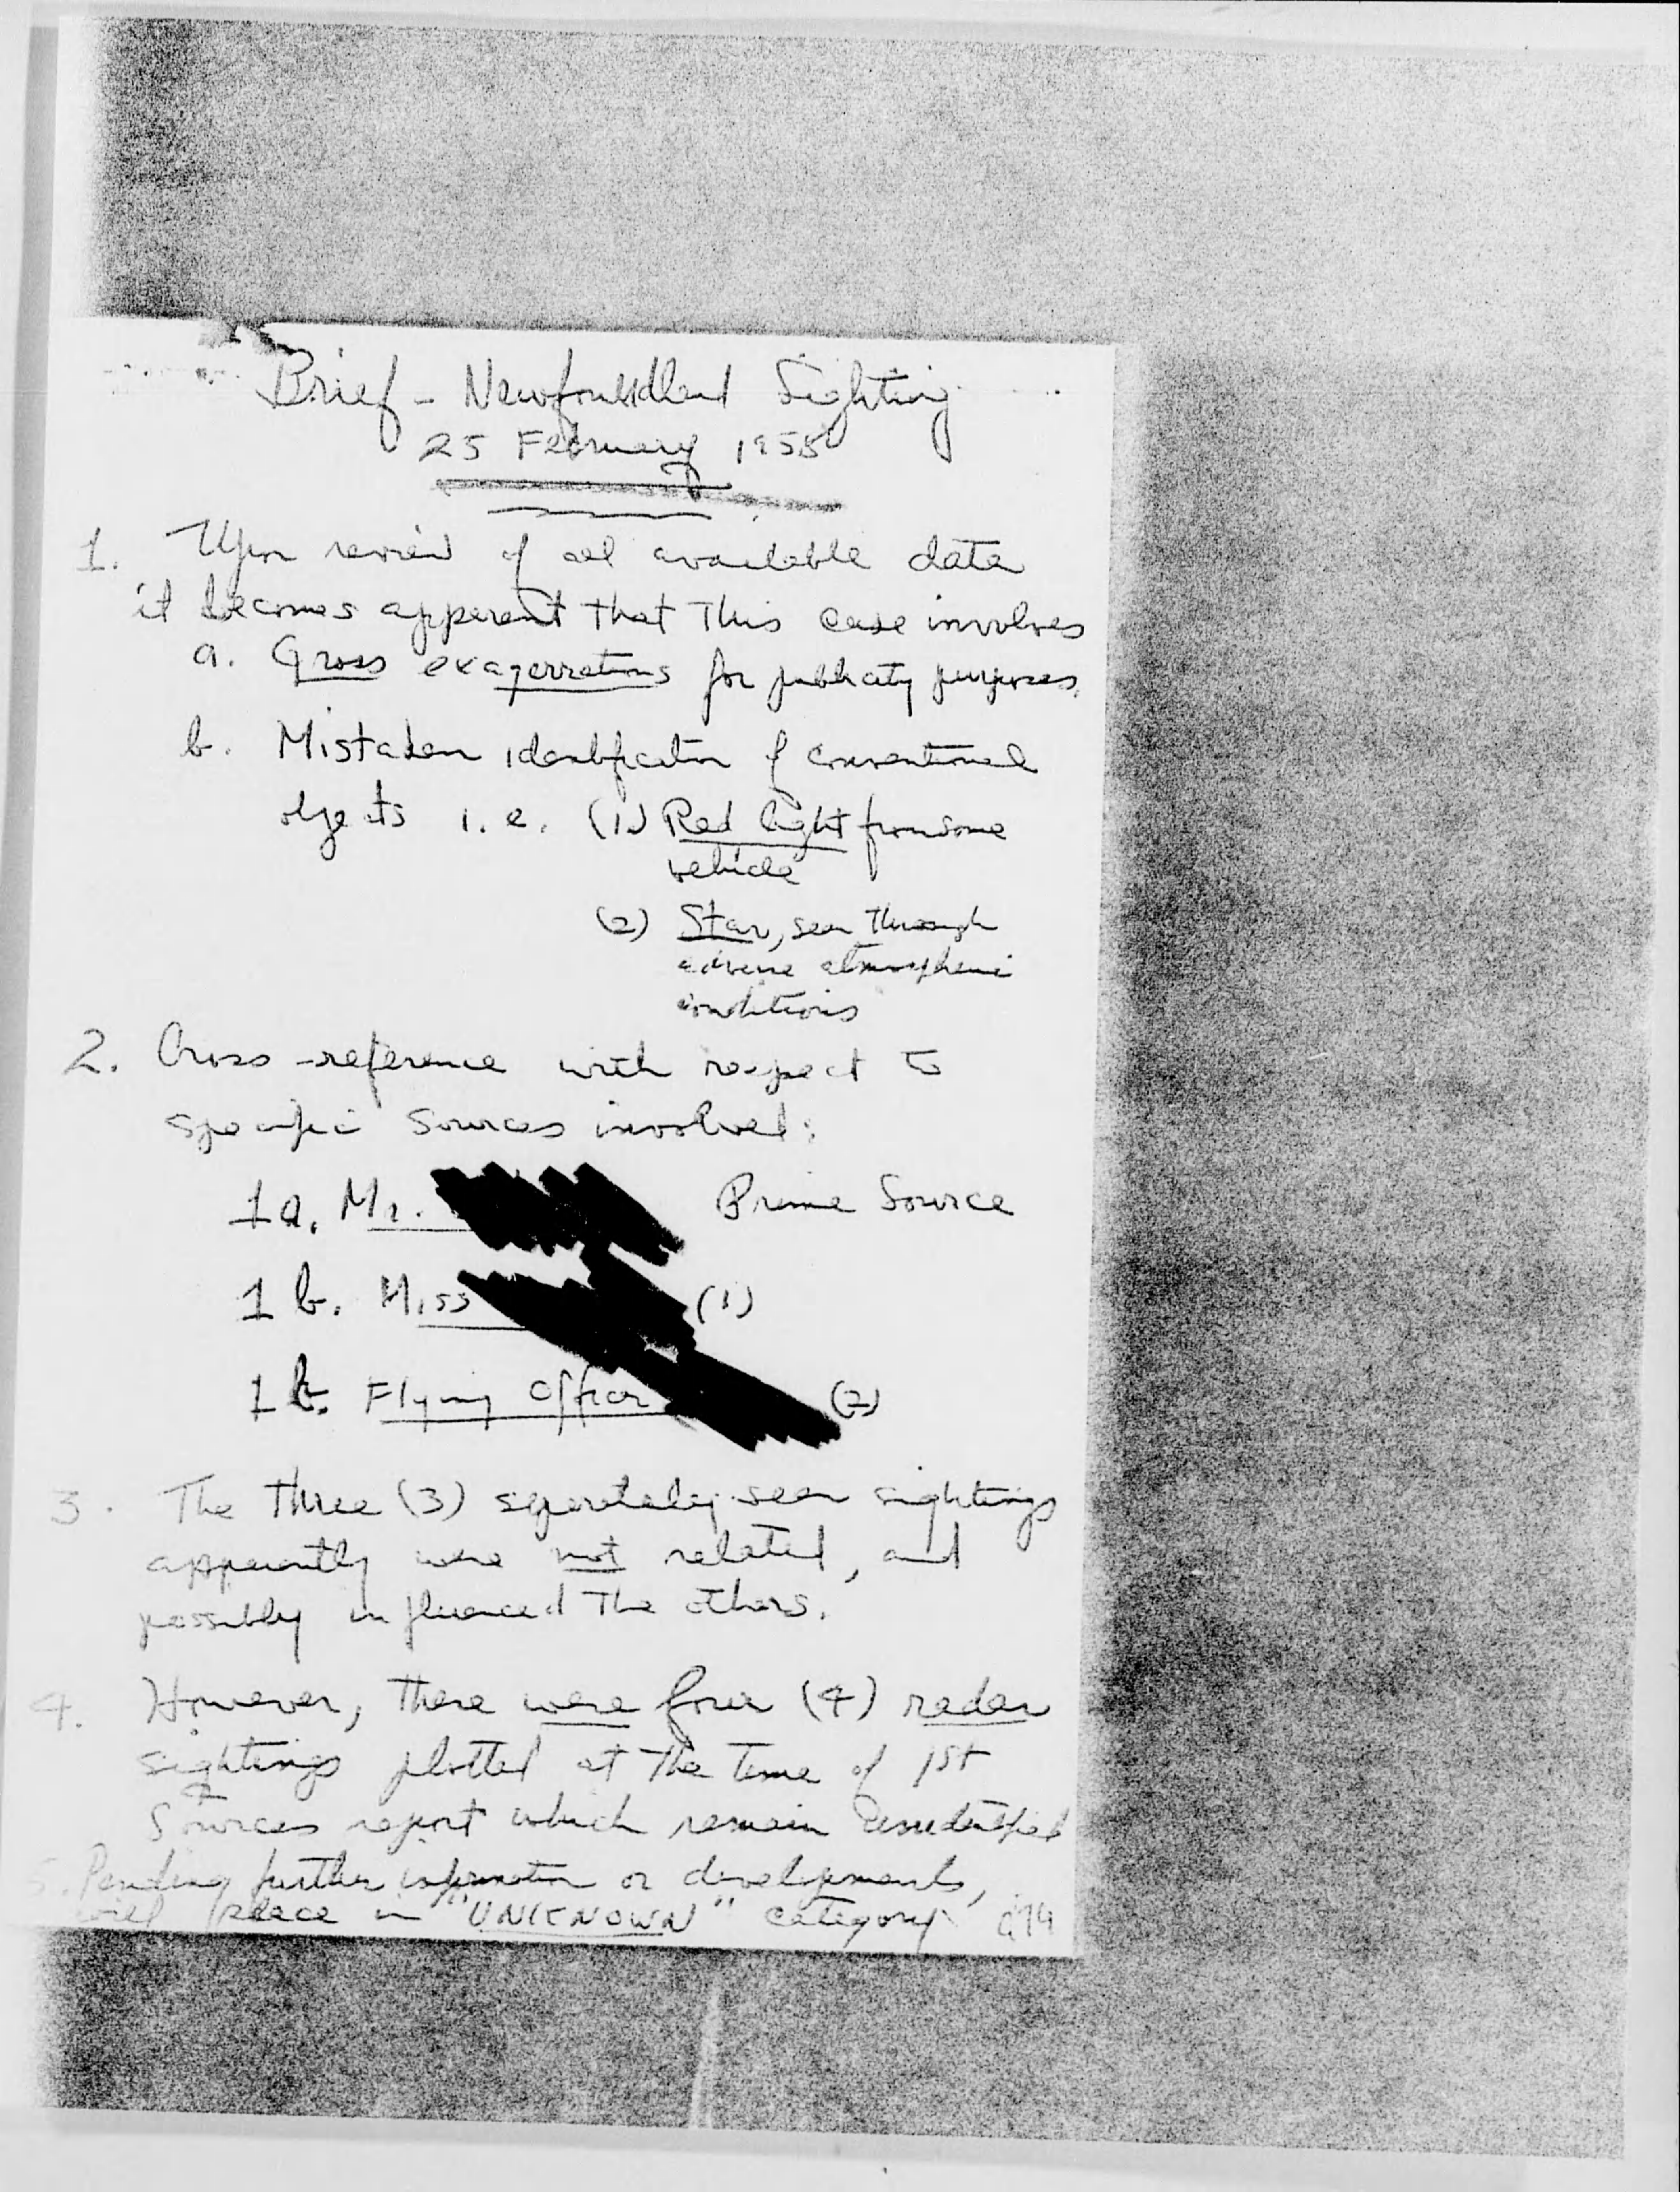 Brief - Newfoundland Sighting
25 February 1958
1. Upon review of all available data
it becomes apparent that This case involves
a. Gross exagerrations for publicity purposes.
b. Mistaken identification of conventional
objects i.e. (1) Red light from some
vehicle
(2) Star, seen Through
adverse atmospheric
conditions
2. Cross-reference with respect to
specific sources involved:
1a. Mr. Prime Source
1b. Miss (1)
1b. Flying Officer (2)
3. The Three (3) separately seen sightings
apparently were not related, and
possibly influenced The others.
4. However, There were four (4) radar
sightings plotted at The Time of 1st
Sources report which remain unidentified
5. Pending further information or developments,
will place in "UNKNOWN" category